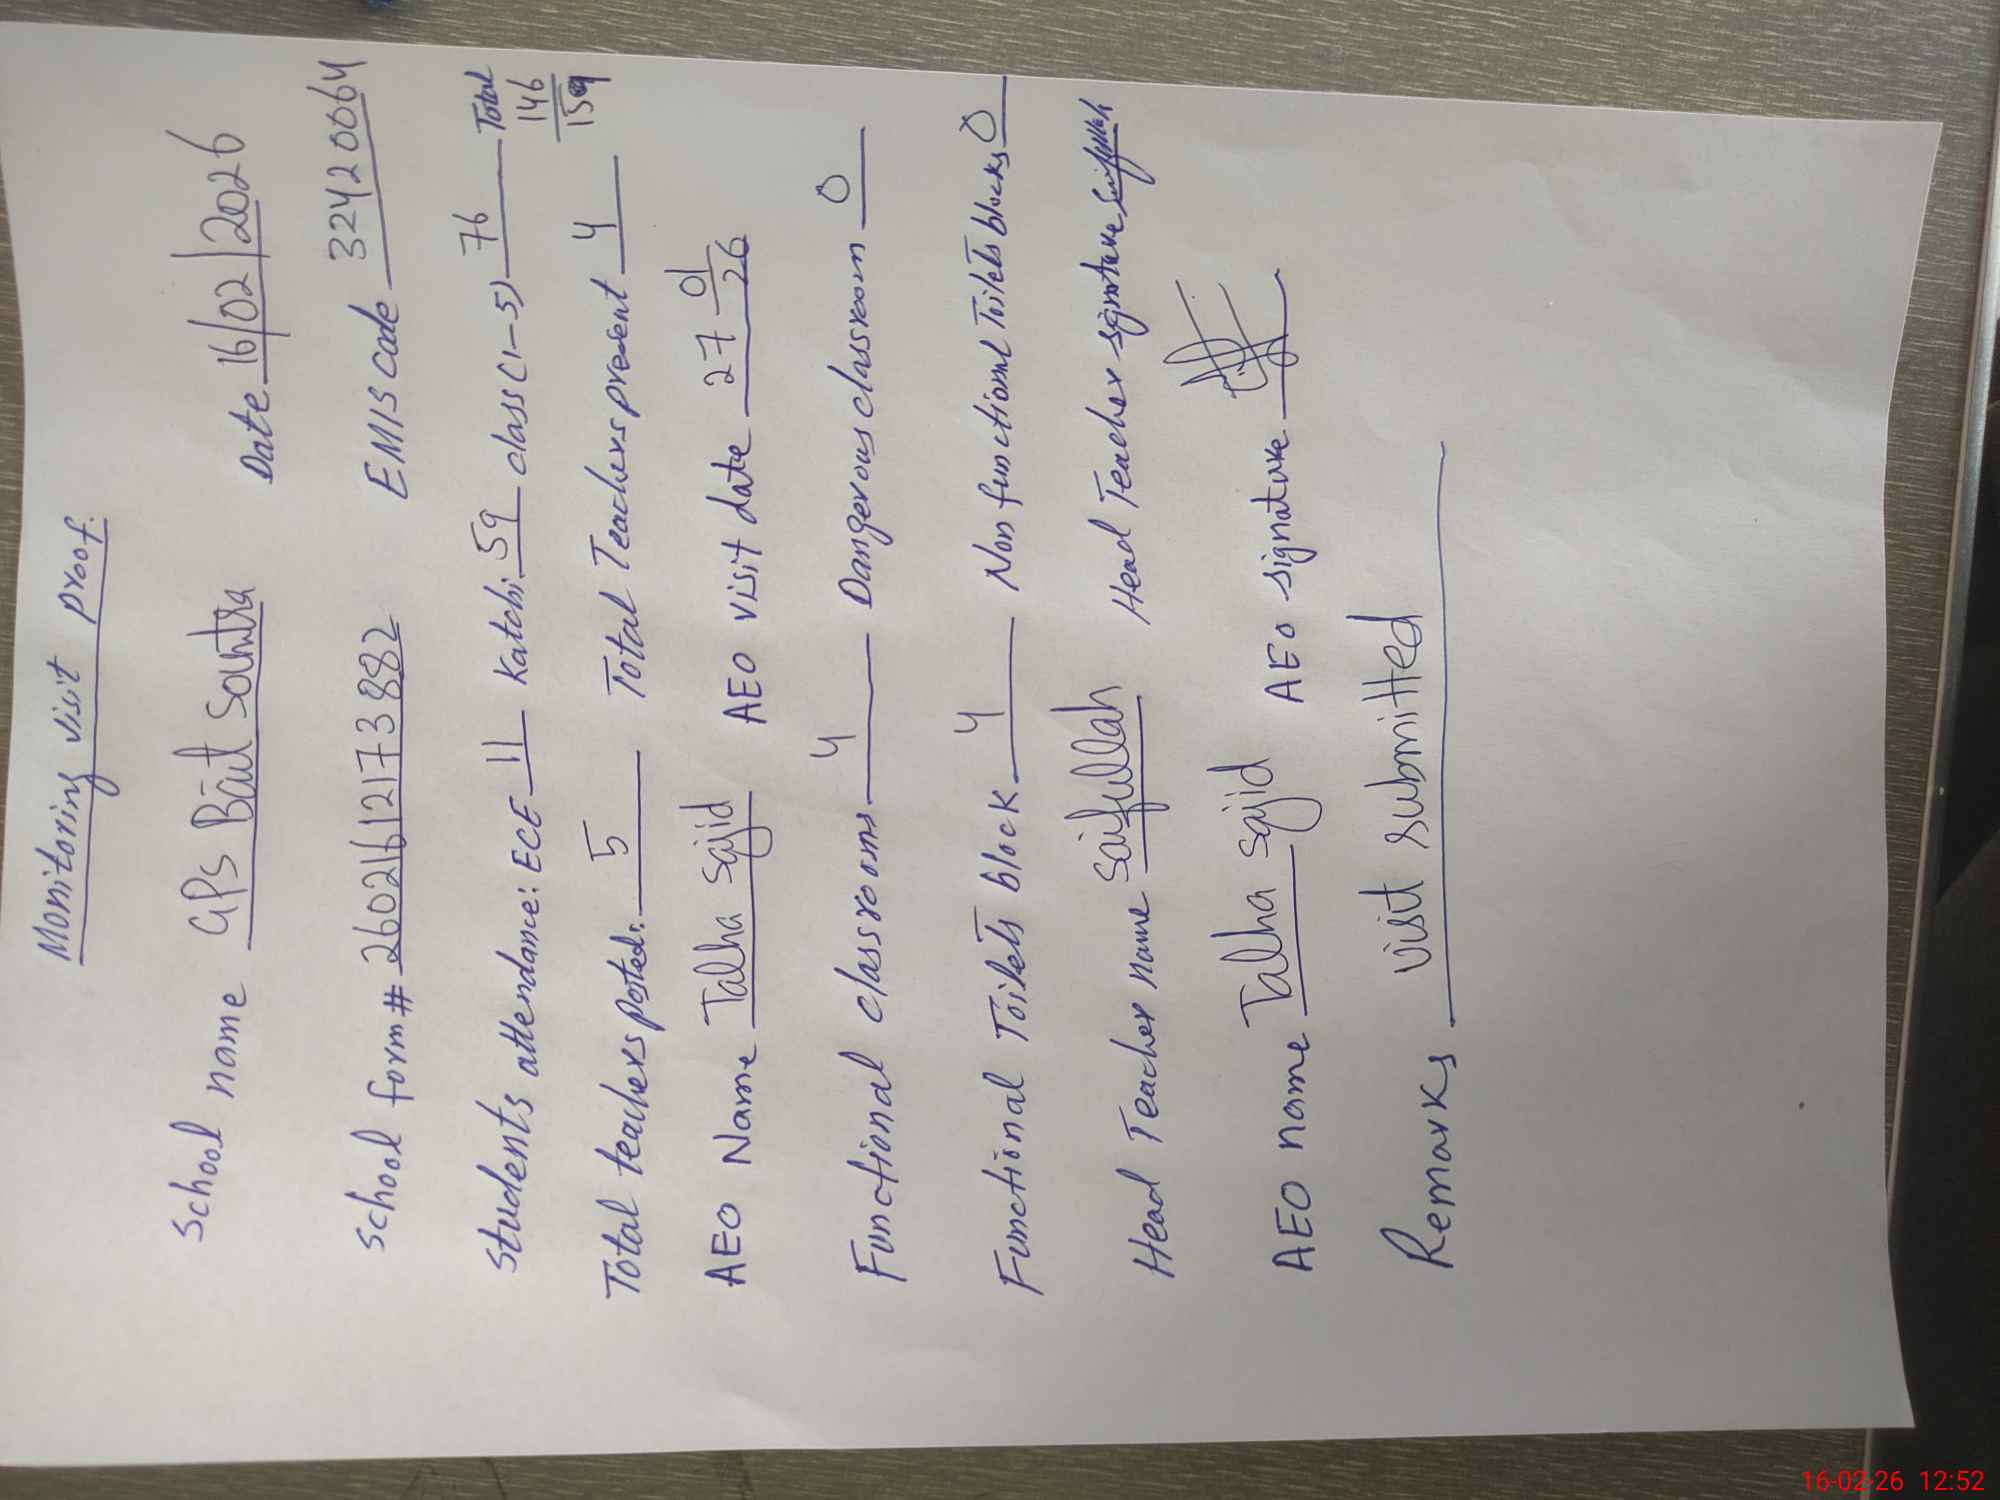 Monitoring visit proof.
School name GPS Bait Sountra Date 16/02/2026
School form# 26021612173882 EMIS Code 32420064
Students attendance: ECE 11 Katchi 59 class (1-5) 76 Total 146/159
Total teachers posted: 5 Total Teachers present 4
AEO Name Talha Sajid AEO visit date 27 01/26
Functional classrooms 4 Dangerous classroom 0
Functional Toilets block 4 Nonfunctional Toilets blocks 0
Head Teacher name Saifullah Head Teacher signature Saifullah
AEO name Talha Sajid AEO signature
Remarks visit submitted
16-02-26 12:52